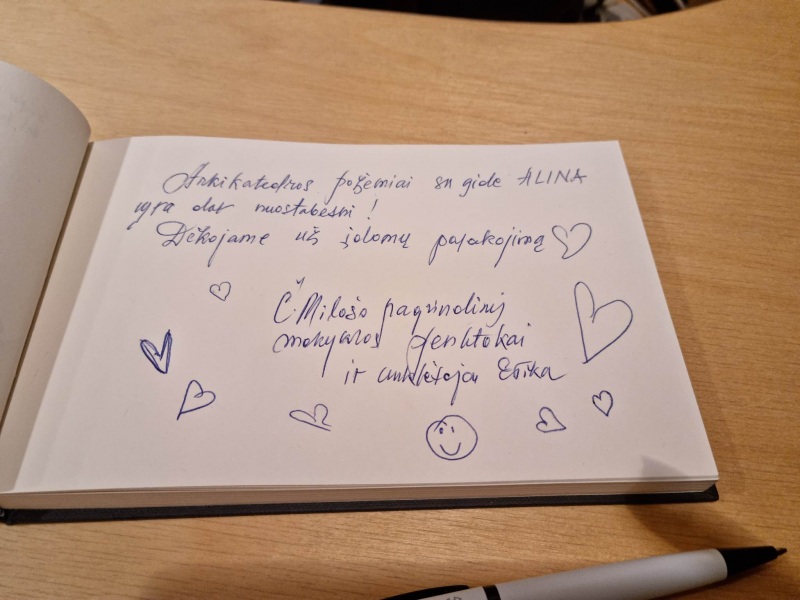 Arkikatedros požemiai su gide ALINA
yra dar nuostabesni!
Dėkojame už įdomų pasakojimą
Č. Milošo pagrindinės
mokyklos penktokai
ir auklėtoja Erika